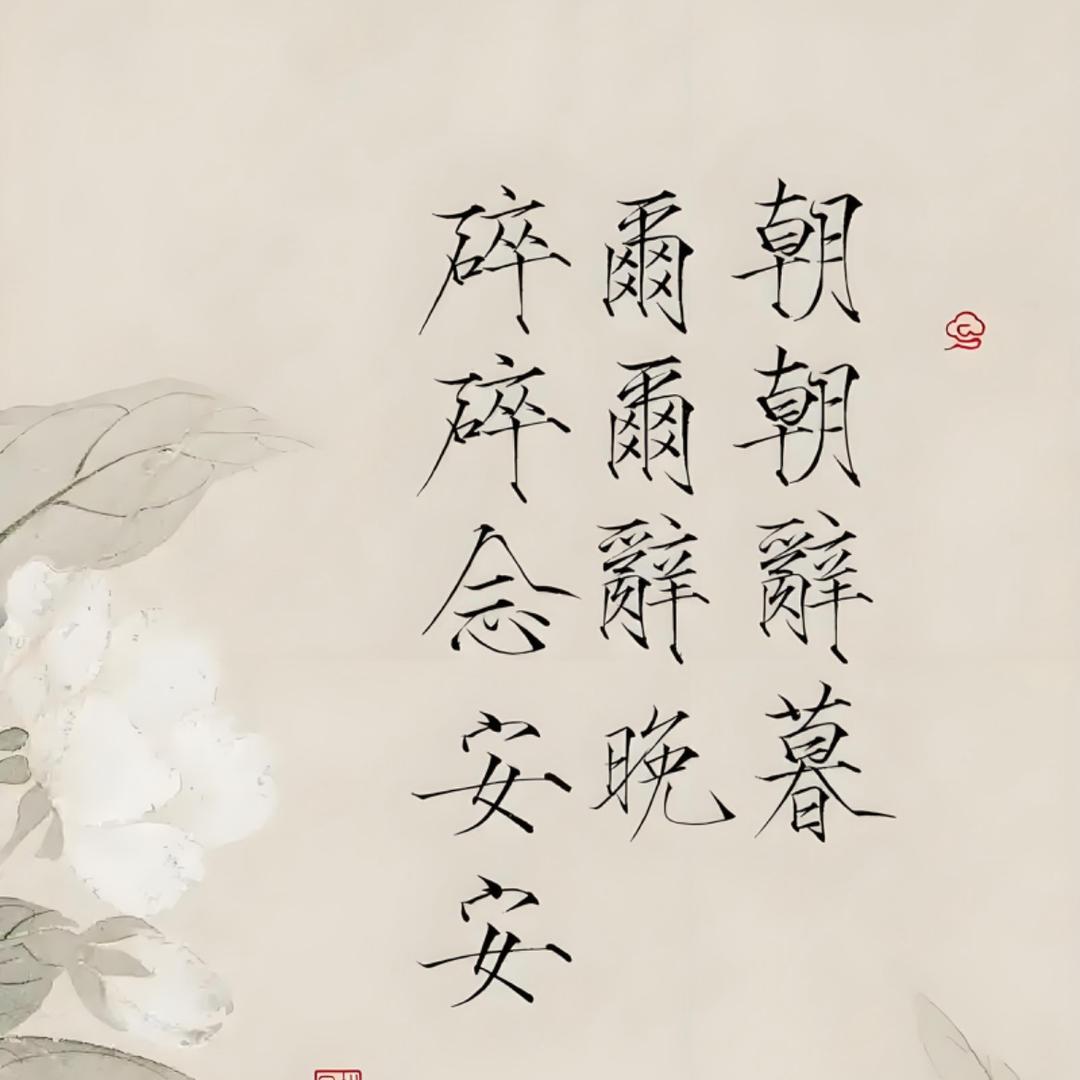 朝朝辭暮
爾爾辭晚
碎碎念安安